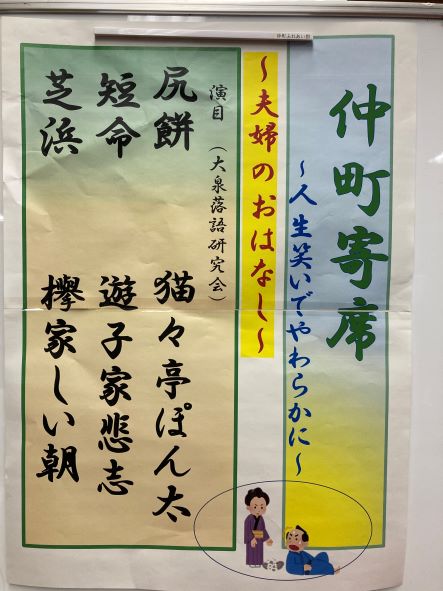 仲町ふれあい館
仲町寄席
～人生笑いでやわらかに～
～夫婦のおはなし～
演目（大泉落語研究会）
尻餅 猫々亭ぽん太
短命 遊子家悲志
芝浜 欅家しい朝